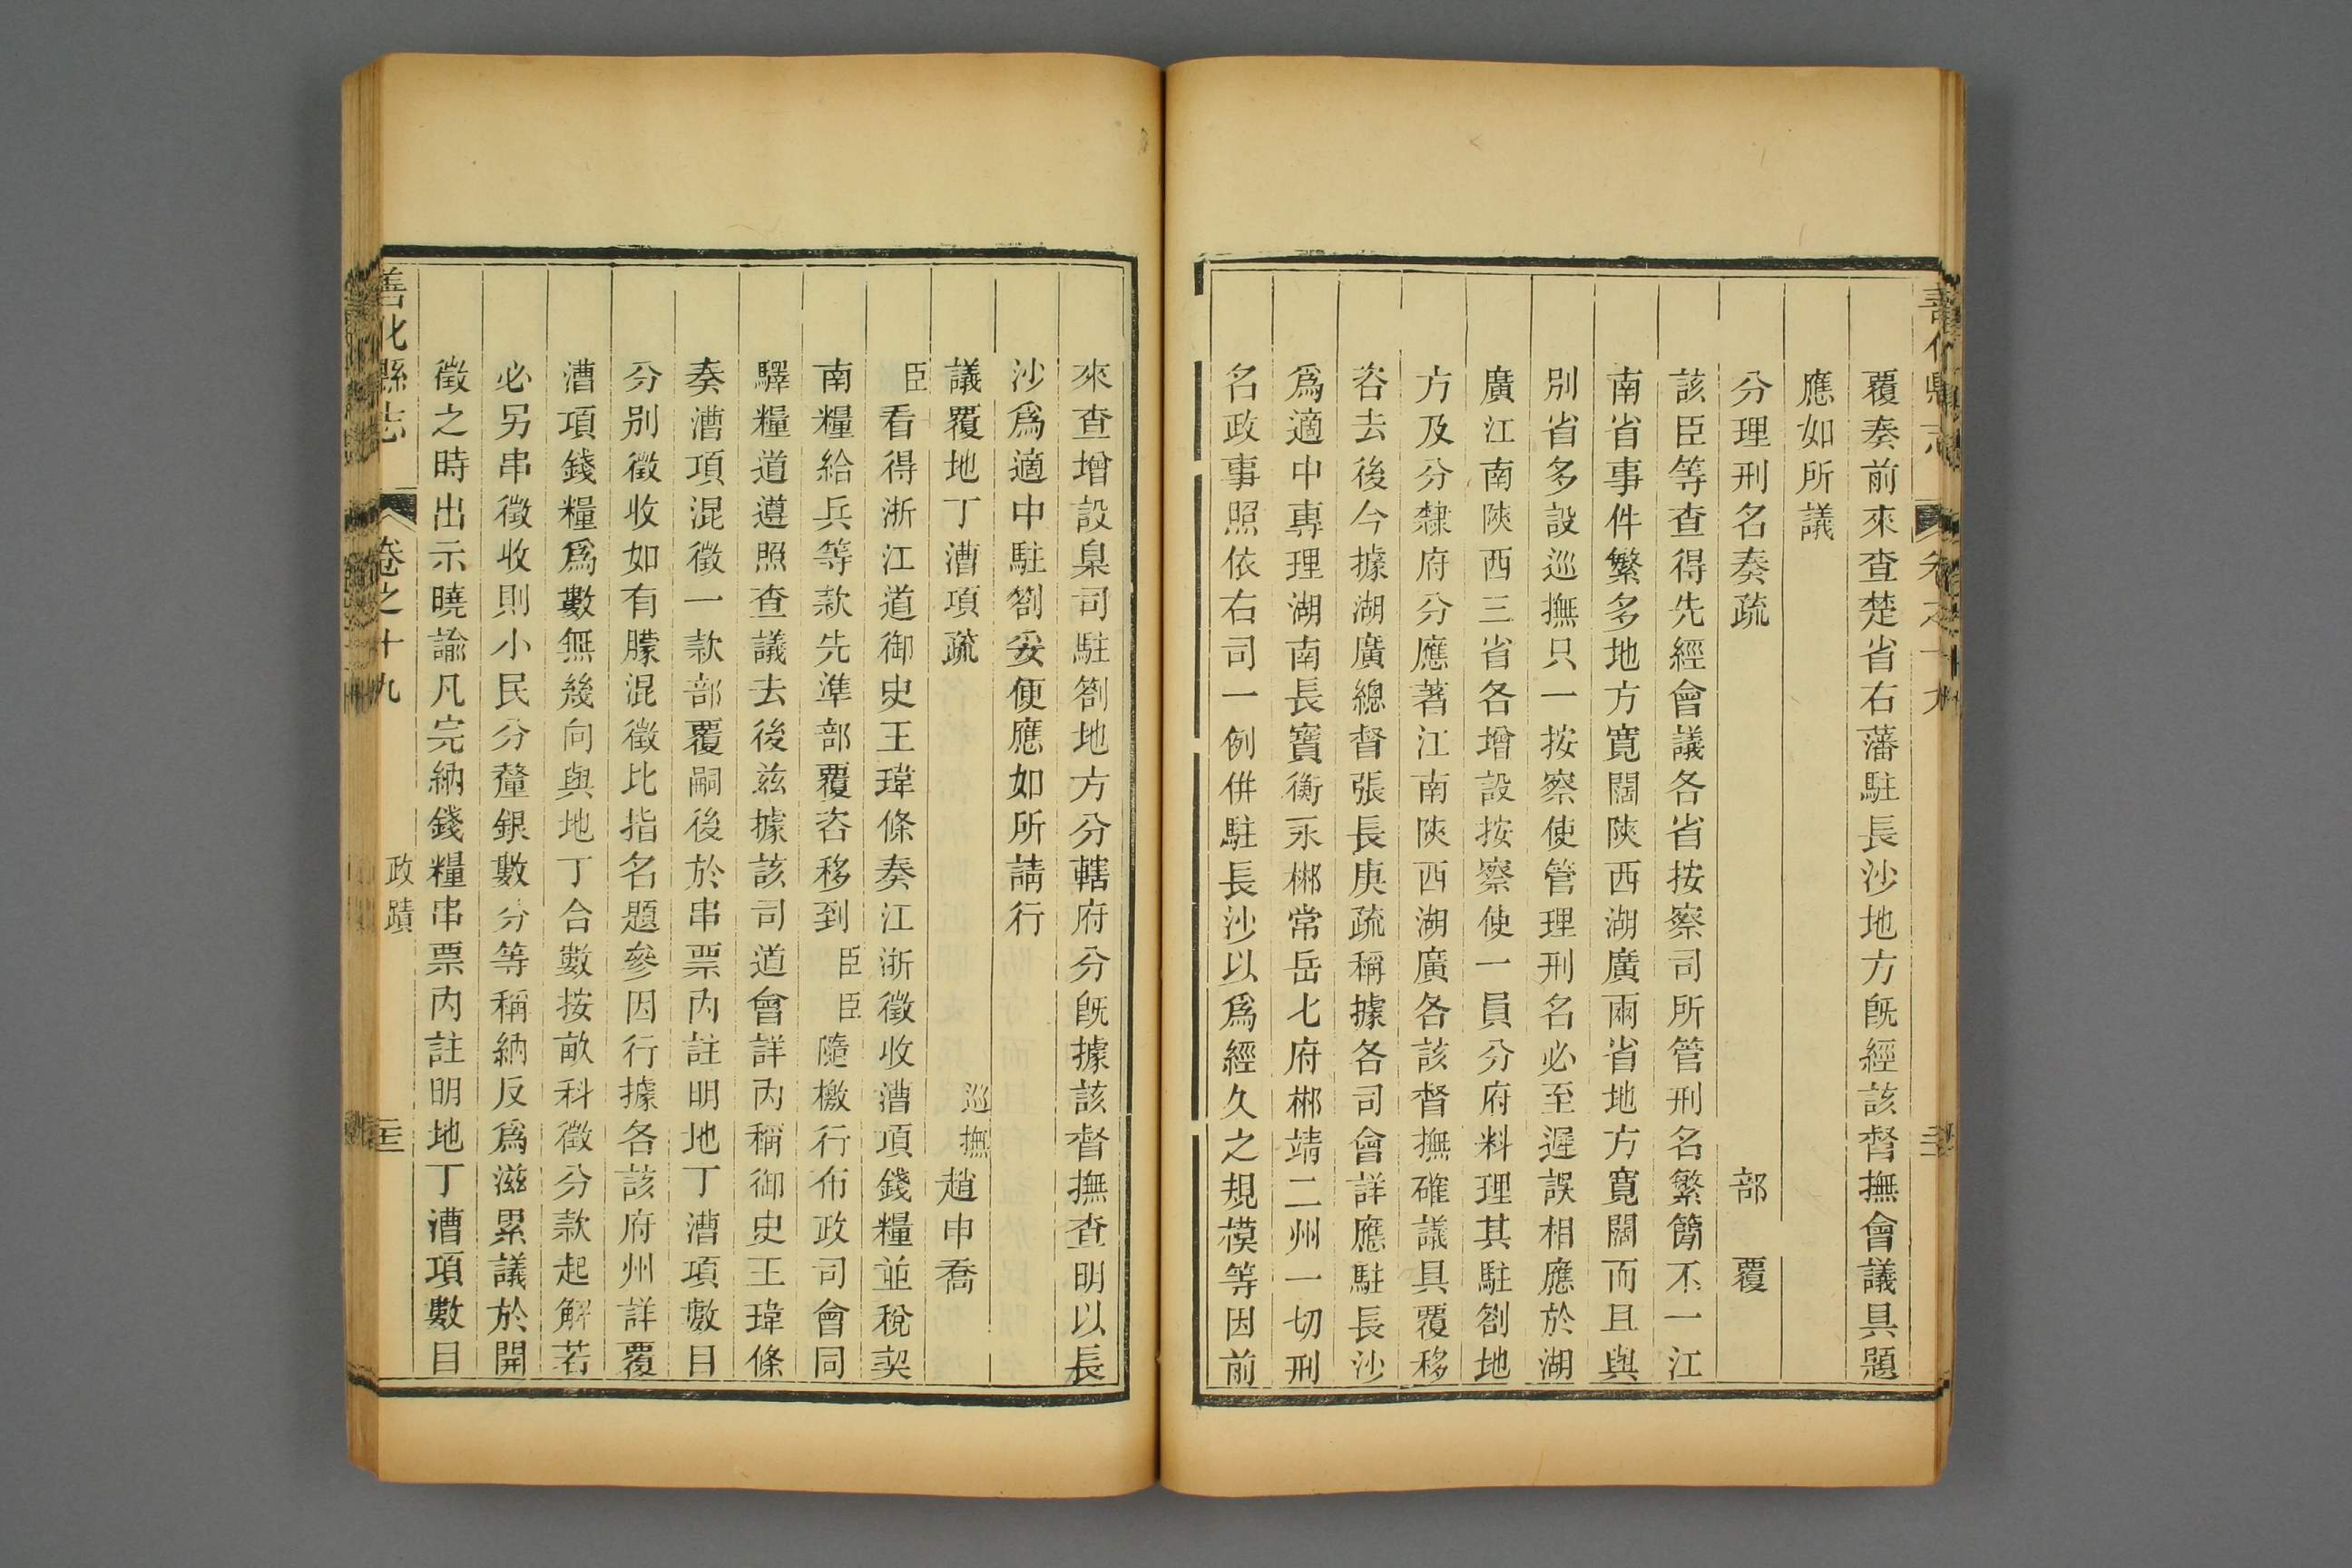 善化縣志 卷之十九
覆奏前來查楚省右藩駐長沙地方旣經該督撫會議具題
應如所議
分理刑名奏疏 部 覆
該臣等查得先經會議各省按察司所管刑名繁簡不一江
南省事件繁多地方寬闊陝西湖廣兩省地方寬闊而且與
別省多設巡撫只一按察使管理刑名必至遲誤相應於湖
廣江南陝西三省各增設按察使一員分府料理其駐劄地
方及分隸府分應著江南陝西湖廣各該督撫確議具覆移
咨去後今據湖廣總督張長庚疏稱據各司會詳應駐長沙
爲適中專理湖南長寶衡永郴常岳七府郴靖二州一切刑
名政事照依右司一例倂駐長沙以爲經久之規模等因前
來查增設臬司駐劄地方分轄府分旣據該督撫查明以長
沙爲適中駐劄妥便應如所請行
議覆地丁漕項疏 巡撫趙申喬
臣看得浙江道御史王瑋條奏江浙徵收漕項錢糧並稅契
南糧給兵等款先準部覆咨移到臣臣隨檄行布政司會同
驛糧道遵照查議去後兹據該司道會詳內稱御史王瑋條
奏漕項混徵一款部覆嗣後於串票內註明地丁漕項數目
分別徵收如有朦混徵比指名題參因行據各該府州詳覆
漕項錢糧爲數無幾向與地丁合數按畝科徵分款起解若
必另串徵收則小民分釐銀數分等稱納反爲滋累議於開
徵之時出示曉諭凡完納錢糧串票內註明地丁漕項數目
善化縣志 卷之十九 政蹟